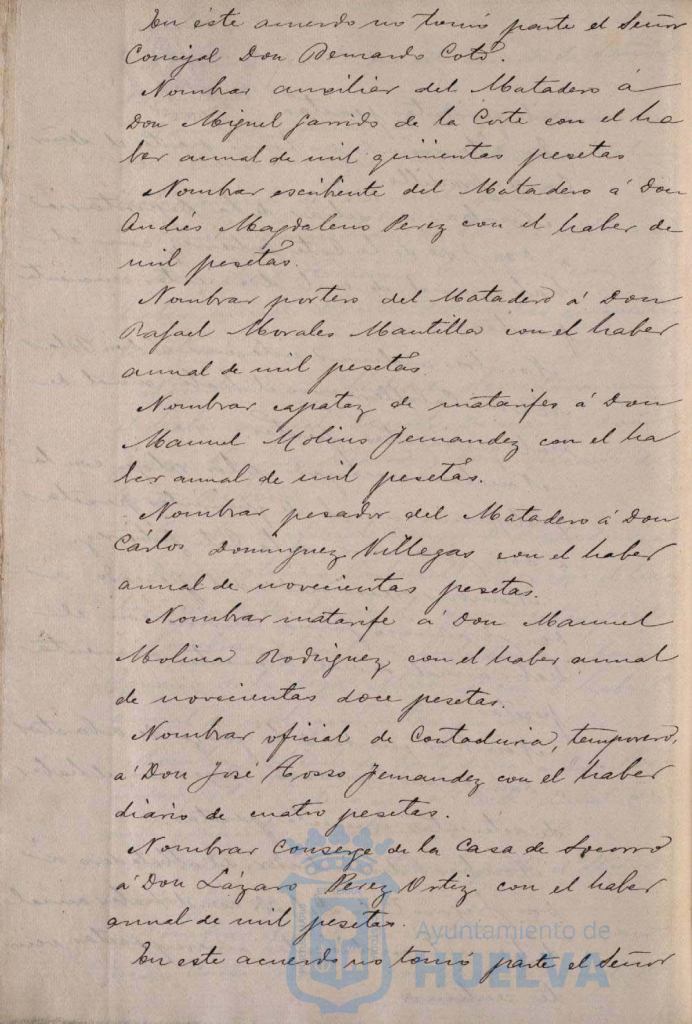 En éste acuerdo no tomó parte el Señor
Concejal Don Bernardo Coto.
Nombrar auxiliar del Matadero á
Don Miguel Garrido de la Corte con el ha
ber anual de mil quinientas pesetas
Nombrar escribiente del Matadero á Don
Andrés Magdaleno Perez con el haber de
mil pesetas.
Nombrar portero del Matadero á Don
Rafael Morales Mantilla con el haber
anual de mil pesetas.
Nombrar capataz de matarifes á Don
Manuel Molins Fernandez con el ha
ber anual de mil pesetas.
Nombrar pesador del Matadero á Don
Cárlos Dominguez Villegas con el haber
anual de novecientas pesetas.
Nombrar matarife á Don Manuel
Molina Rodriguez con el haber anual
de novecientas doce pesetas.
Nombrar oficial de Contaduria, temporero,
á Don José Fernandez con el haber
diario de cuatro pesetas.
Nombrar Conserge de la Casa de Socorro
á Don Lázaro Perez Ortiz con el haber
anual de mil pesetas.
En este acuerdo no tomó parte el Señor
Ayuntamiento de
HUELVA